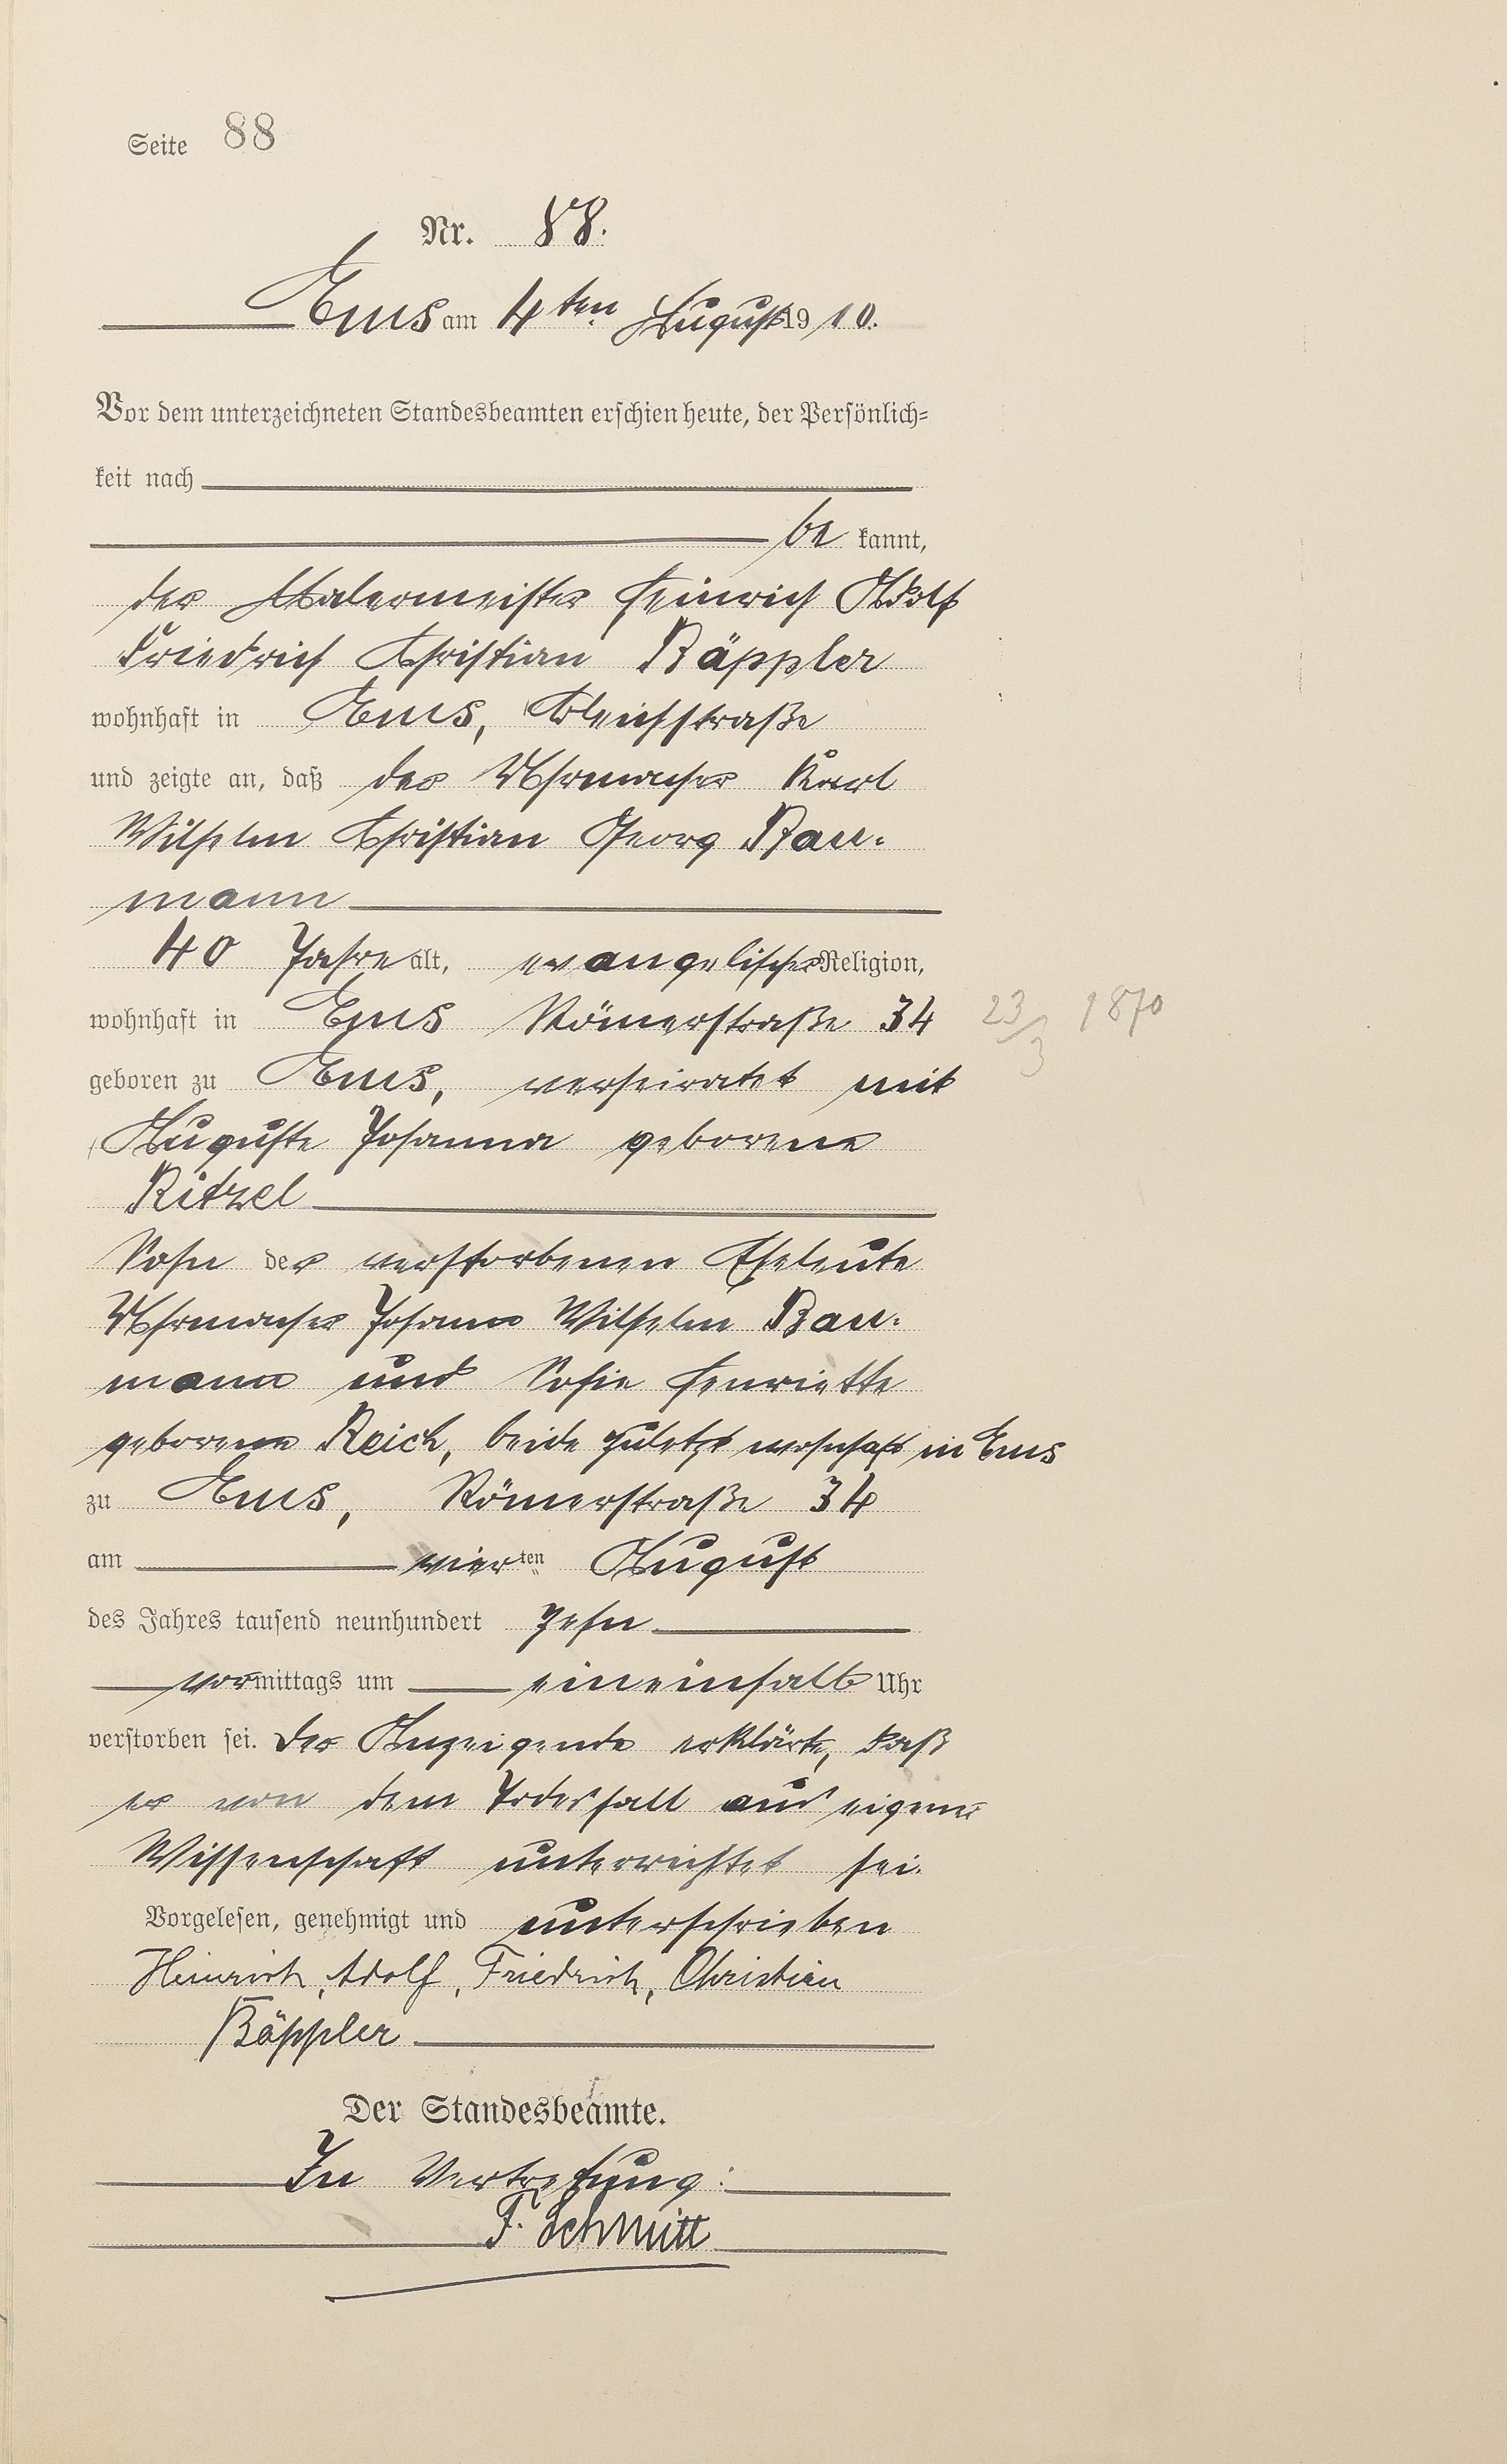 Seite 88
Nr. 88.
Ems am 4ten August 1910.
Vor dem unterzeichneten Standesbeamten erschien heute, der Persönlich-
keit nach
be kannt,
der Malermeister Heinrich Adolf
Friedrich Christian Bäppler
wohnhaft in Ems, Bleichstraße
und zeigte an, daß der Uhrmacher Karl
Wilhelm Christian Georg Bau-
mann
40 Jahre alt, evangelischer Religion,
wohnhaft in Ems Römerstraße 34
23/3 1870
geboren zu Ems, verheiratet mit
Auguste Johanna geborene
Ritzel
Sohn der verstorbenen Eheleute
Uhrmacher Johann Wilhelm Bau-
mann und Sofie Henriette
geborene Reich, beide zuletzt wohnhaft in Ems
zu Ems, Römerstraße 34
am vierten August
des Jahres tausend neunhundert zehn
vormittags um eineinhalb Uhr
verstorben sei. Der Anzeigende erklärte, daß
er von dem Todesfall aus eigener
Wissenschaft unterrichtet sei.
Vorgelesen, genehmigt und unterschrieben
Heinrich, Adolf, Friedrich, Christian
Bäppler
Der Standesbeamte.
In Vertretung:
F. Schmitt